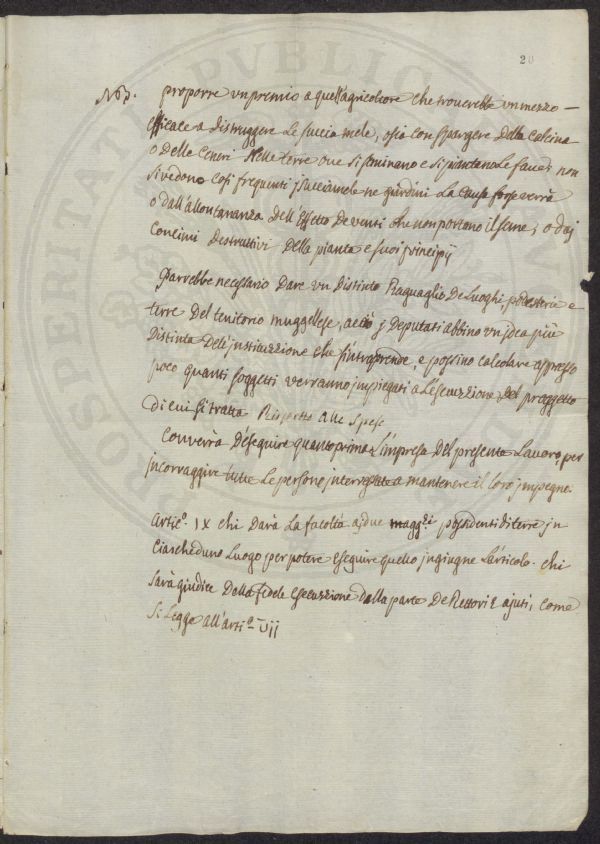 20
NB. proporre un premio a quell'agricoltore che trouerebbe un mezzo
efficace a distruggere Le succia mele, o sia con spargere della calcina
o delle Ceneri Nelle terre oue si seminano e si piantano Le faue; non
si vedono così frequenti j succiamele ne giardini La causa forse verrà
o dall'allontananza dell'Effetto De venti che non portano il seme, o daj
Concimi Destruttivi Della pianta e suoi principij
Parrebbe necessario Dare un Distinto Raguaglio De Luoghi, podesterie e
terre Del territorio muggellese, acciò j Deputati abbino un jdea più
Distinta Dell'instituzzione che s'intraprende, e possino calcolare appresso
poco quanti soggetti verranno impiegati a L'esecuzzione del proggetto
di cui si tratta Rispetto alle Spese
Converrà D'eseguire quanto prima L'impresa Del presente Lavoro, per
incorraggire tutte Le persone interressate a mantenere il Loro jmpegno.
Artic.º IX chi Darà La facoltà aj due magg.ri possidenti di terre jn
Ciascheduno Luogo per potere Eseguire quello jngiugne L'articolo. chi
sarà giudice Della fedele esecuzzione dalla parte De Rettori e ajuti, come
si Legge all'arti.º VII
PROSPERITATI PUBLICAE